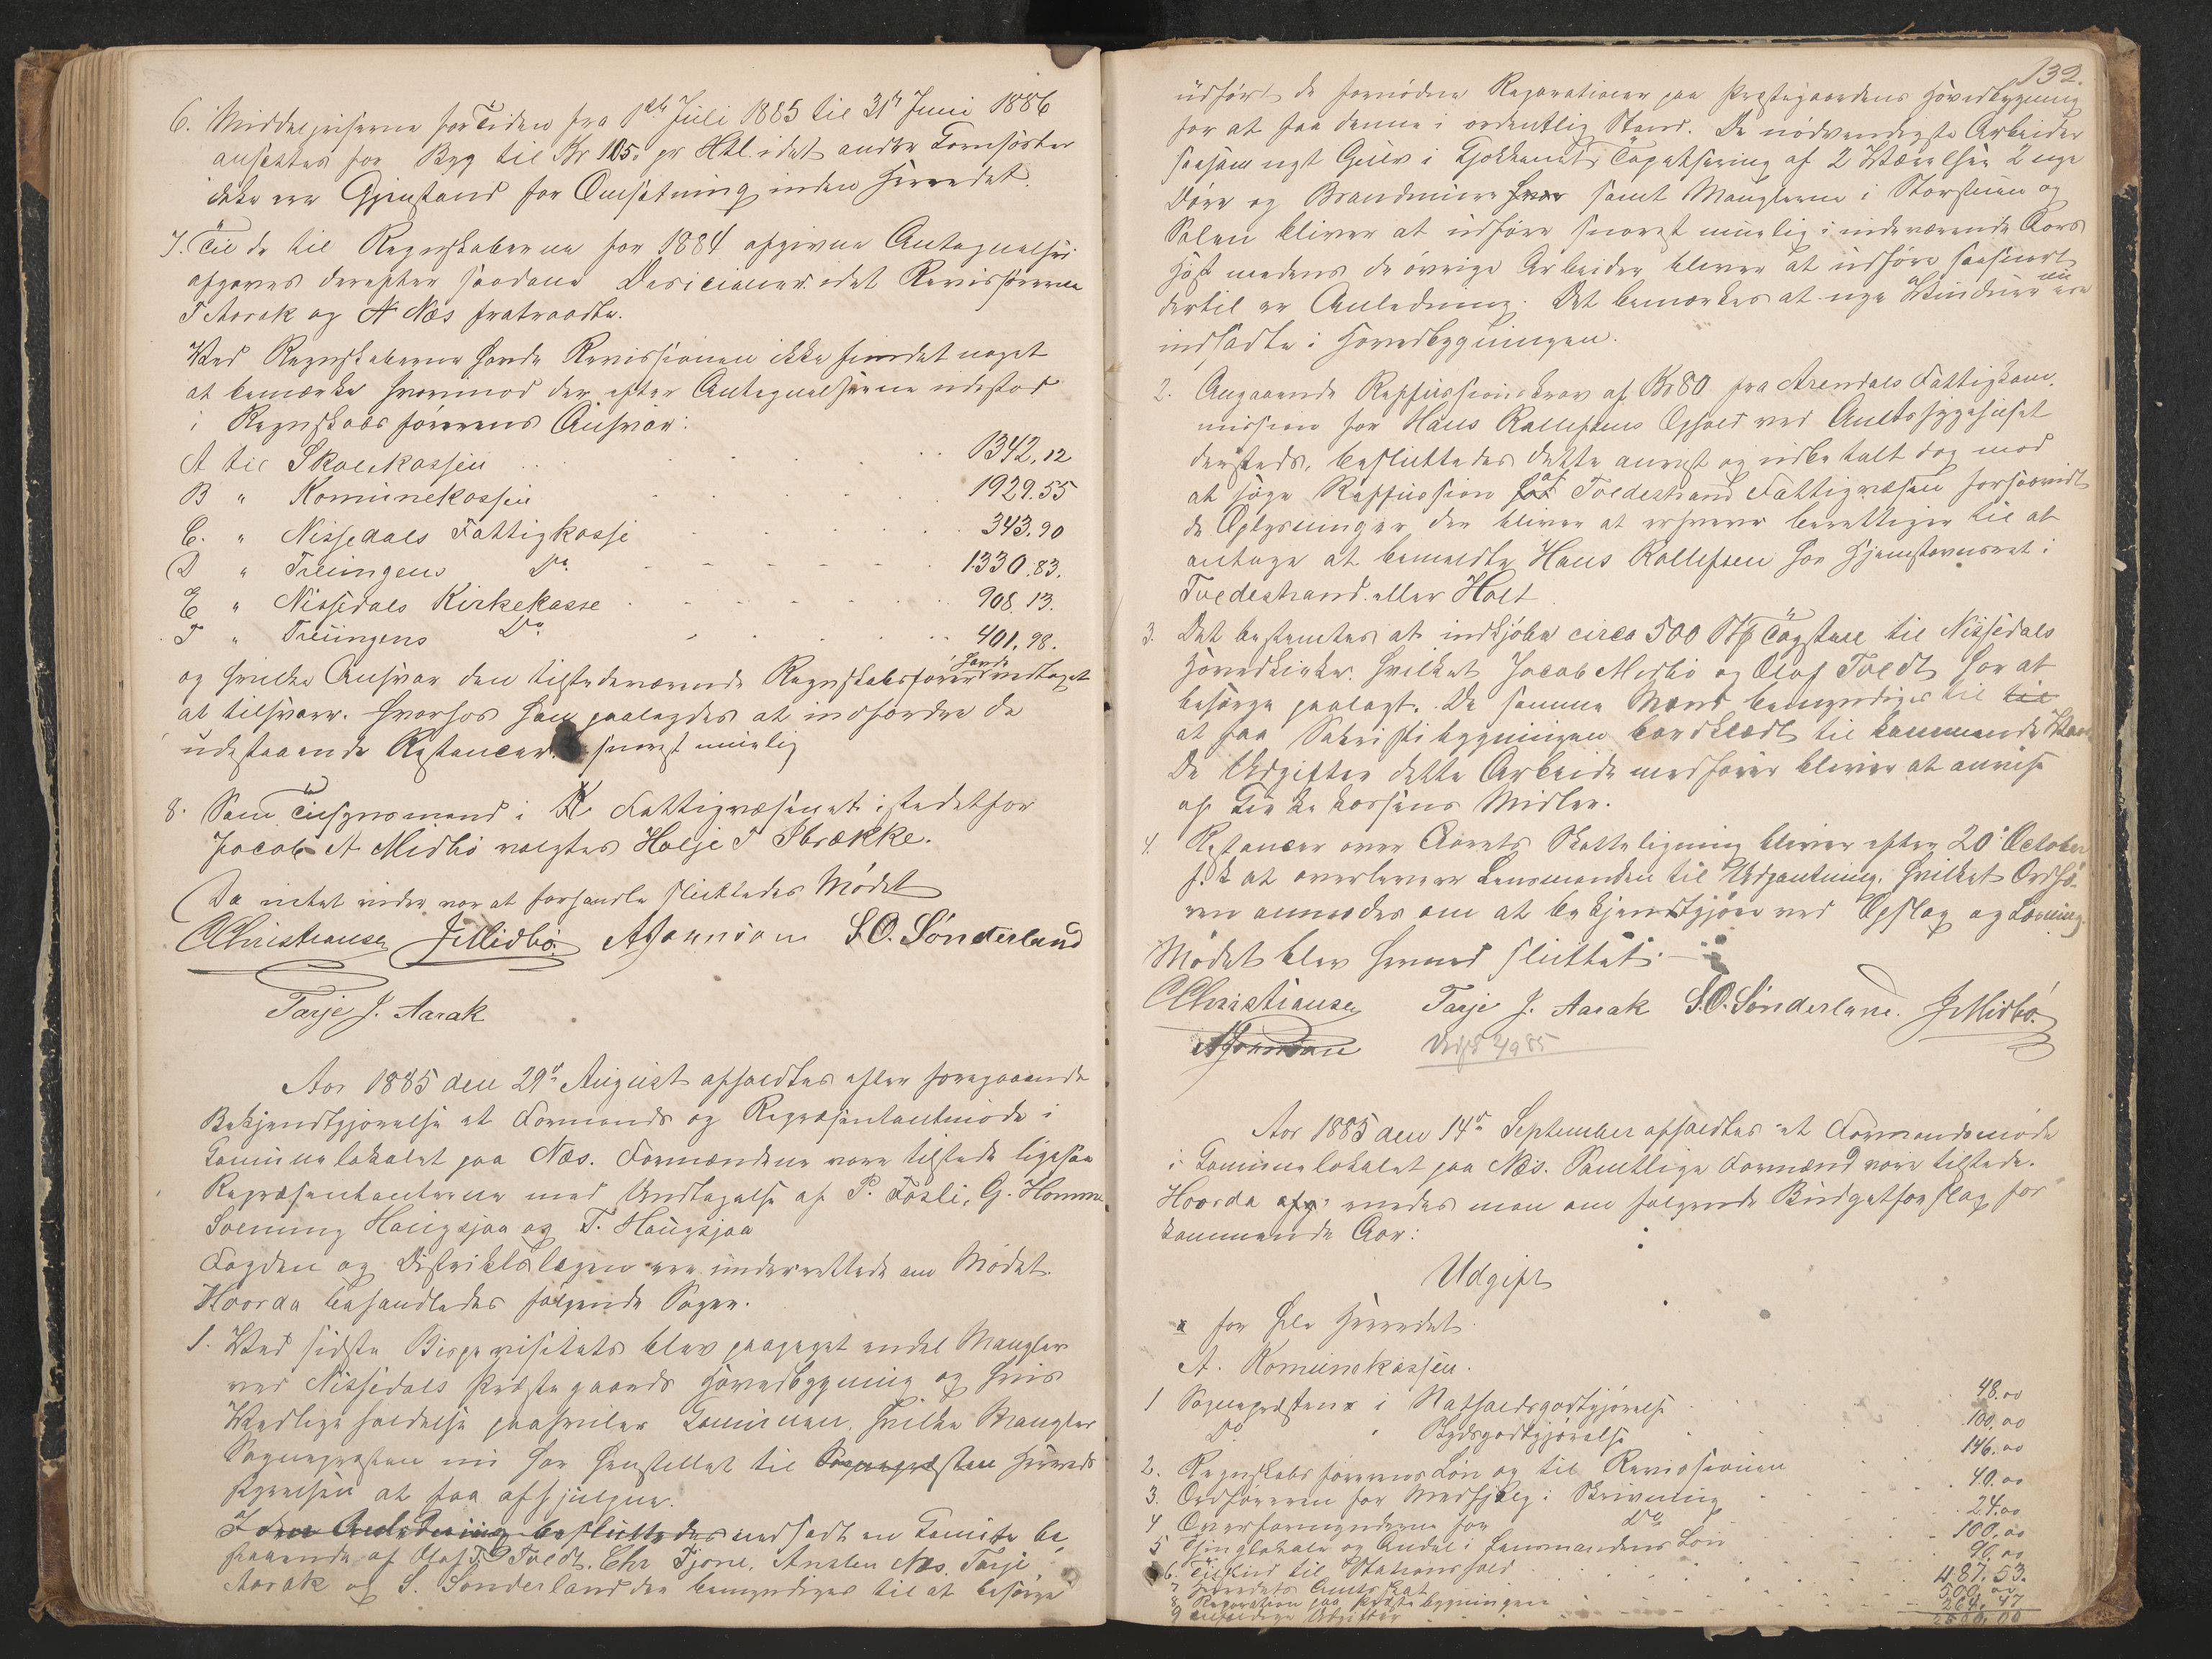 6. Middelpriserne for Tiden fra 1ste Juli 1885 til 31te Juni 1886
ansettes for Byg til Kr 10 5. pr Htl. idet andre Kornsorter
ikke ere Gjenstand for Omsætning inden Herredet.
7. Til de til Regnskaberne for 1884 afgivne Antegnelser
afgaves derefter saadane Desicioner idet Revisorerne
T Aarak og N Næs fratraadte.
Ved Regnskaberne havde Revissionen ikke fundet noget
at bemærke hvorimod der efter Antegnelserne udestod
i Regnskabsførerens Ansvar:
A til Skolekassen 1342,12
B " Komunekassen 1929.55
C. " Nissedals Fattigkasse 343.90
D " Treungens Do 1330.83.
E " Nissedals Kirkekasse 908.13.
F " Treungens Do 401.98.
og hvilke Ansvar den tilstedeværende Regnskabsfører havde modtaget
at tilsvare. Hvorhos han paalagdes at indfordre de
udestaaende Restancer snarest muelig
8. Som Tilsynsmand i Fattigvæsenet istedetfor
Jacob A Midbö valgtes Helje T Sbrække.
Da intet videre var at forhandle sluttedes Mödet
CChristiansen JMidbö. AJohnson S.O. Sönderland
Tarje J. Aarak
Aar 1885 den 29de August afholdtes efter foregaaende
Bekjendtgjørelse et Formands og Repræsentantmöde i
Komunelokalet paa Næs. Formændene vare tilstede ligesaa
Repræsentanterne med Undtagelse af P. Fosli, G. Homme
Sveinung Haugsjaa og T. Haugsjaa
Fogden og Distriktslægen ere underrettede om Mödet.
Hvorda behandledes følgende Sager.
1. Ved sidste Bispevisitats blev paapeget endel Mangler
ved Nissedals Præstegaards Hovedbygning og hvis
Vedligeholdelse paahviler Komunen. Hvilke Mangler
Sognepræsten nu har henstillet til Sognepræsten Herreds
styrelsen at faa afhjulpne.
I den Anledning besluttedes nedsadt en Komite be
staaende af Olaf T. Tvedt. Chr Fjone, Anslen Næs, Tarje
Aarak og S. Sonderland der bemyndiges til at besörge
132.
udført de fornødne Reparationer paa Præstegaardens Hovedbygning
for at faa denne i ordentlig Stand. De nødvendigste Arbeider
saasom nyt Gulv i Kjökkenet, Tapetsering af 2 Værelser 2 nye
Döre og Brandmure hvor samt Manglerne i Storstuen og
Salen bliver at udføre snarest muelig i indeværende Aars
Höst medens de övrige Arbeider bliver at udføre saasnart
dertil er Anledning. Det bemærkes at nye Vinduer nu ere
indsadte i Hovedbygningen.
2. Angaaende Refussionskrav af Kr 80 fra Arendals Fattigkom
mission for Hans Rollefsens Ophold ved Amtssygehuset
dersteds, besluttedes dette anvist og udbetalt dog mod
at söge Refussion hos af Tvedestrand Fattigvæsen forsaavidt
de Oplysninger der bliver at erhverve berettiger til at
antage at bemeldte Hans Rollefsen har Hjemstavnsret i
Tvedestrand eller Holt
3. Det bestemtes at indkjöbe circa 500 Stk Tagsten til Nissedals
Hovedkirke. Hvilket Jacob Midbö og Olaf Tvedt har at
besörge paalagt. De samme Mænd bemyndiges til til
at faa Sakristibygningen bordklædt til kommende Vaar
De Udgifter dette Arbeide medfører bliver at anvise
af Kirkekassens Midler.
4. Restancer over Aarets Skatteligning bliver efter 20de October
f. k at overlevere Lensmanden til Udpantning. Hvilket Ordfö-
ren anmodes om at bekjendtgjöre ved Opslag og Læsning.
Mödet blev hermed sluttet.
CChristiansen Tarje J. Aarak S.O. Sönderland. JMidbö.
AJohnson Udsk 4/9 85
Aar 1885 den 14de September afholdtes et Formandsmöde
i Komunelokalet paa Næs. Samtlige Formænd vare tilstede.
Hvorda enedes man om følgende Budgetforslag for
kommende Aar:
Udgift
a for hele Herredet.
A. Komunekassen.
1 Sognepræsten i Natholdsgodtgjörelse 48.00
Do " Skydsgodtgjörelse 100.00
2. Regnskabsførerens Lön og til Revissionen 146.00
3. Ordføreren for Medhjelp i Skrivning 40.00
4 Overformynderne for Do 24.00
5 Thinglokale og Andel i Lensmandens Lön 100.00
6. Tilskud til Stationshold 90.00
7 Herredets Amtsskat 487.53.
8 Reparation paa Præstebygningen 500.00
9 Uforudseede Udgifter 264.47